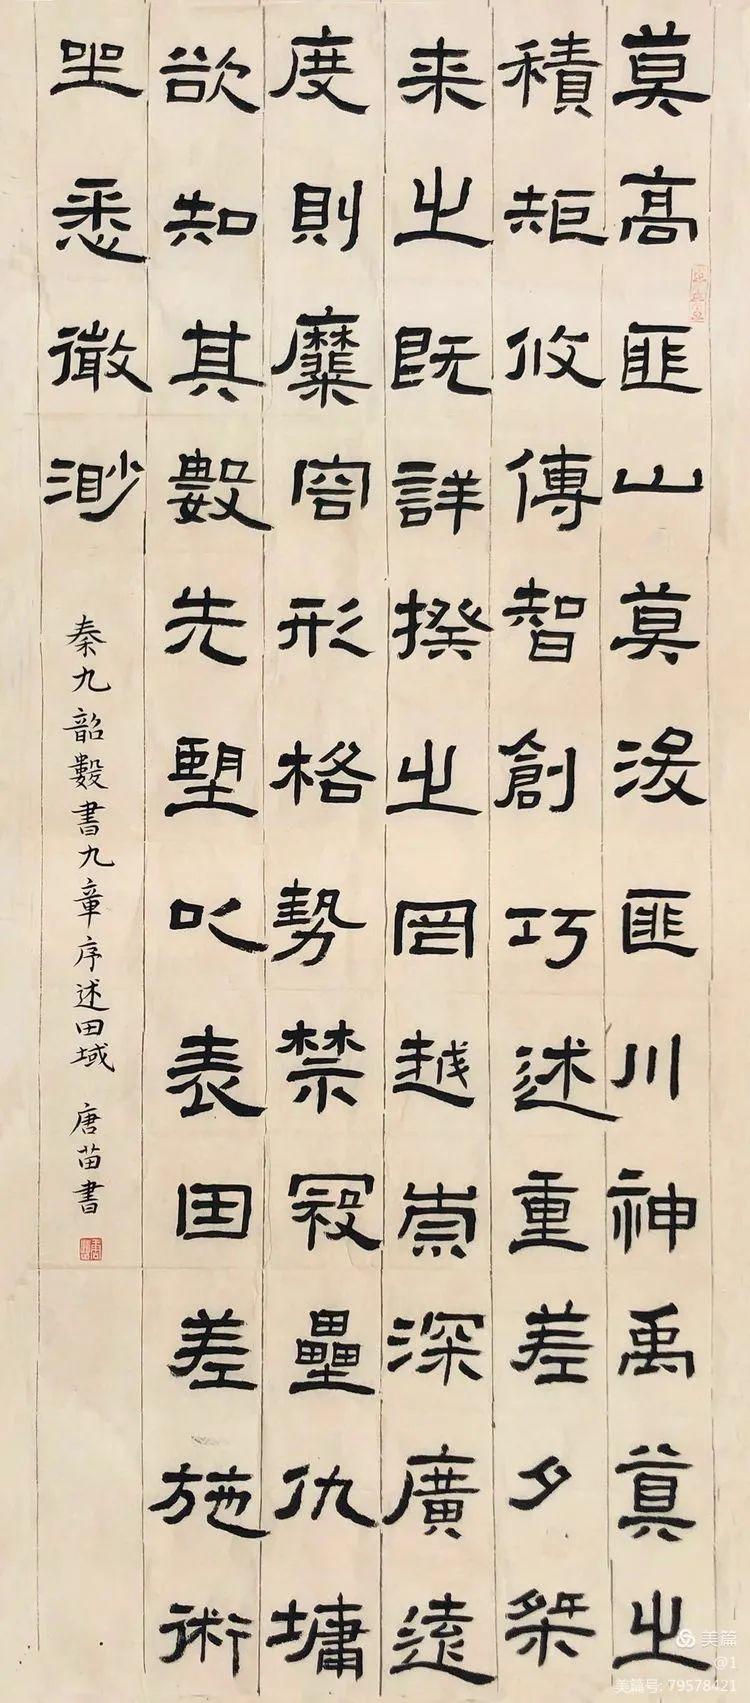 莫高匪山莫浚匪川神禹奠之
積矩攸傳智創巧述重差夕桀
来之既詳揆之罔越崇深廣遠
度則靡容形格勢禁寇壘仇墉
欲知其數先望以表因差施術
坐悉微渺
秦九韶數書九章序述田域 唐苗書
美篇
@1
美篇号: 79578421